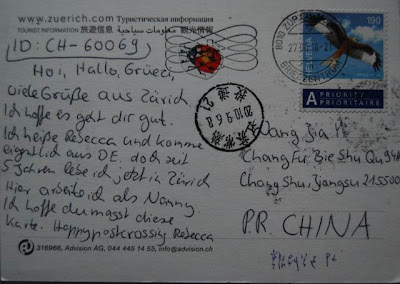 www.zuerich.com Туристическая информация
TOURIST INFORMATION 旅遊信息 معلومات سياحية 観光情報
ID: CH-60069
Hoi, Hallo, Grüezi,
viele Grüße aus Zürich.
Ich hoffe es geht dir gut.
Ich heiße Rebecca und komme
eigentlich aus DE. doch seit
5 Jahren lebe ich jetzt in Zürich
Hier arbeite ich als Nanny.
Ich hoffe du magst diese
Karte. Happypostcrossing Rebecca
316966, Advision AG, 044 445 14 55, info@advision.ch
8010 ZÜRICH
BRIEFZENTRUM
HELVETIA
190
A PRIORITY
PRIORITAIRE
2010.6.8
Wang Jia
Chang Fu Jie Shu Qu 94
Changshu, Jiangsu 215500
P.R. CHINA